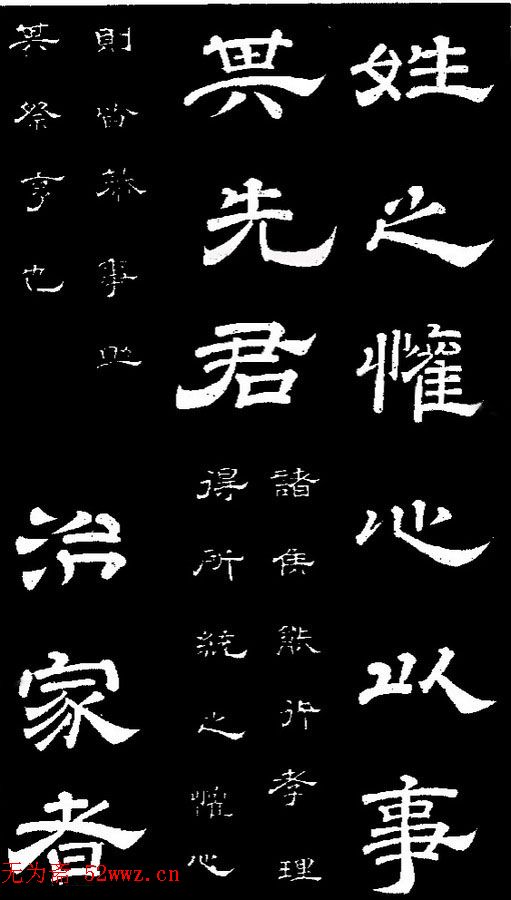 姓之懽心以事
其先君
諸侯能行孝理
得所統之懽心
則皆恭事助
其祭亨也
治家者
无为斋 52wwz.cn